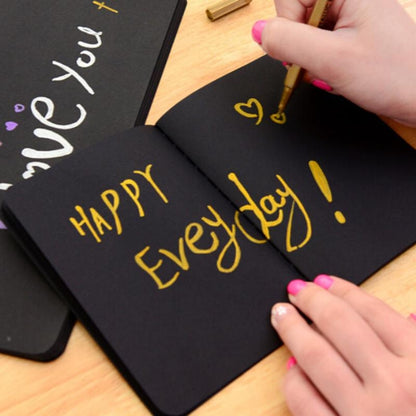 love you
HAPPY
Everyday!